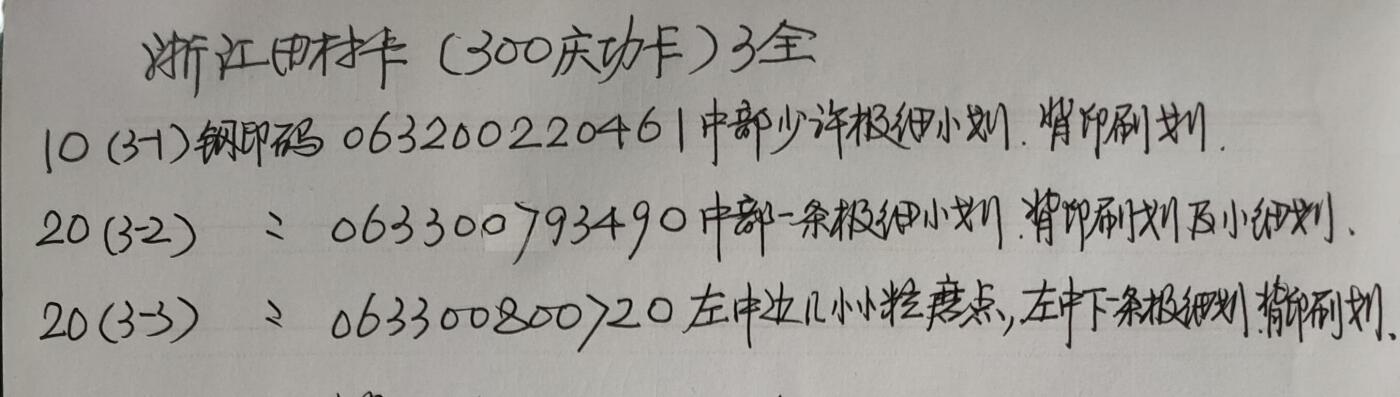 浙江田村卡(300庆功卡)3全
10(3-1)钢印码 063200220461中部少许极细小划.背印刷划.
20(3-2) 〃 063300793490中部一条极细小划.背印刷划及小细划.
20(3-3) 〃 063300800720左中边几小小粒磨点,左中下一条极细划.背印刷划.